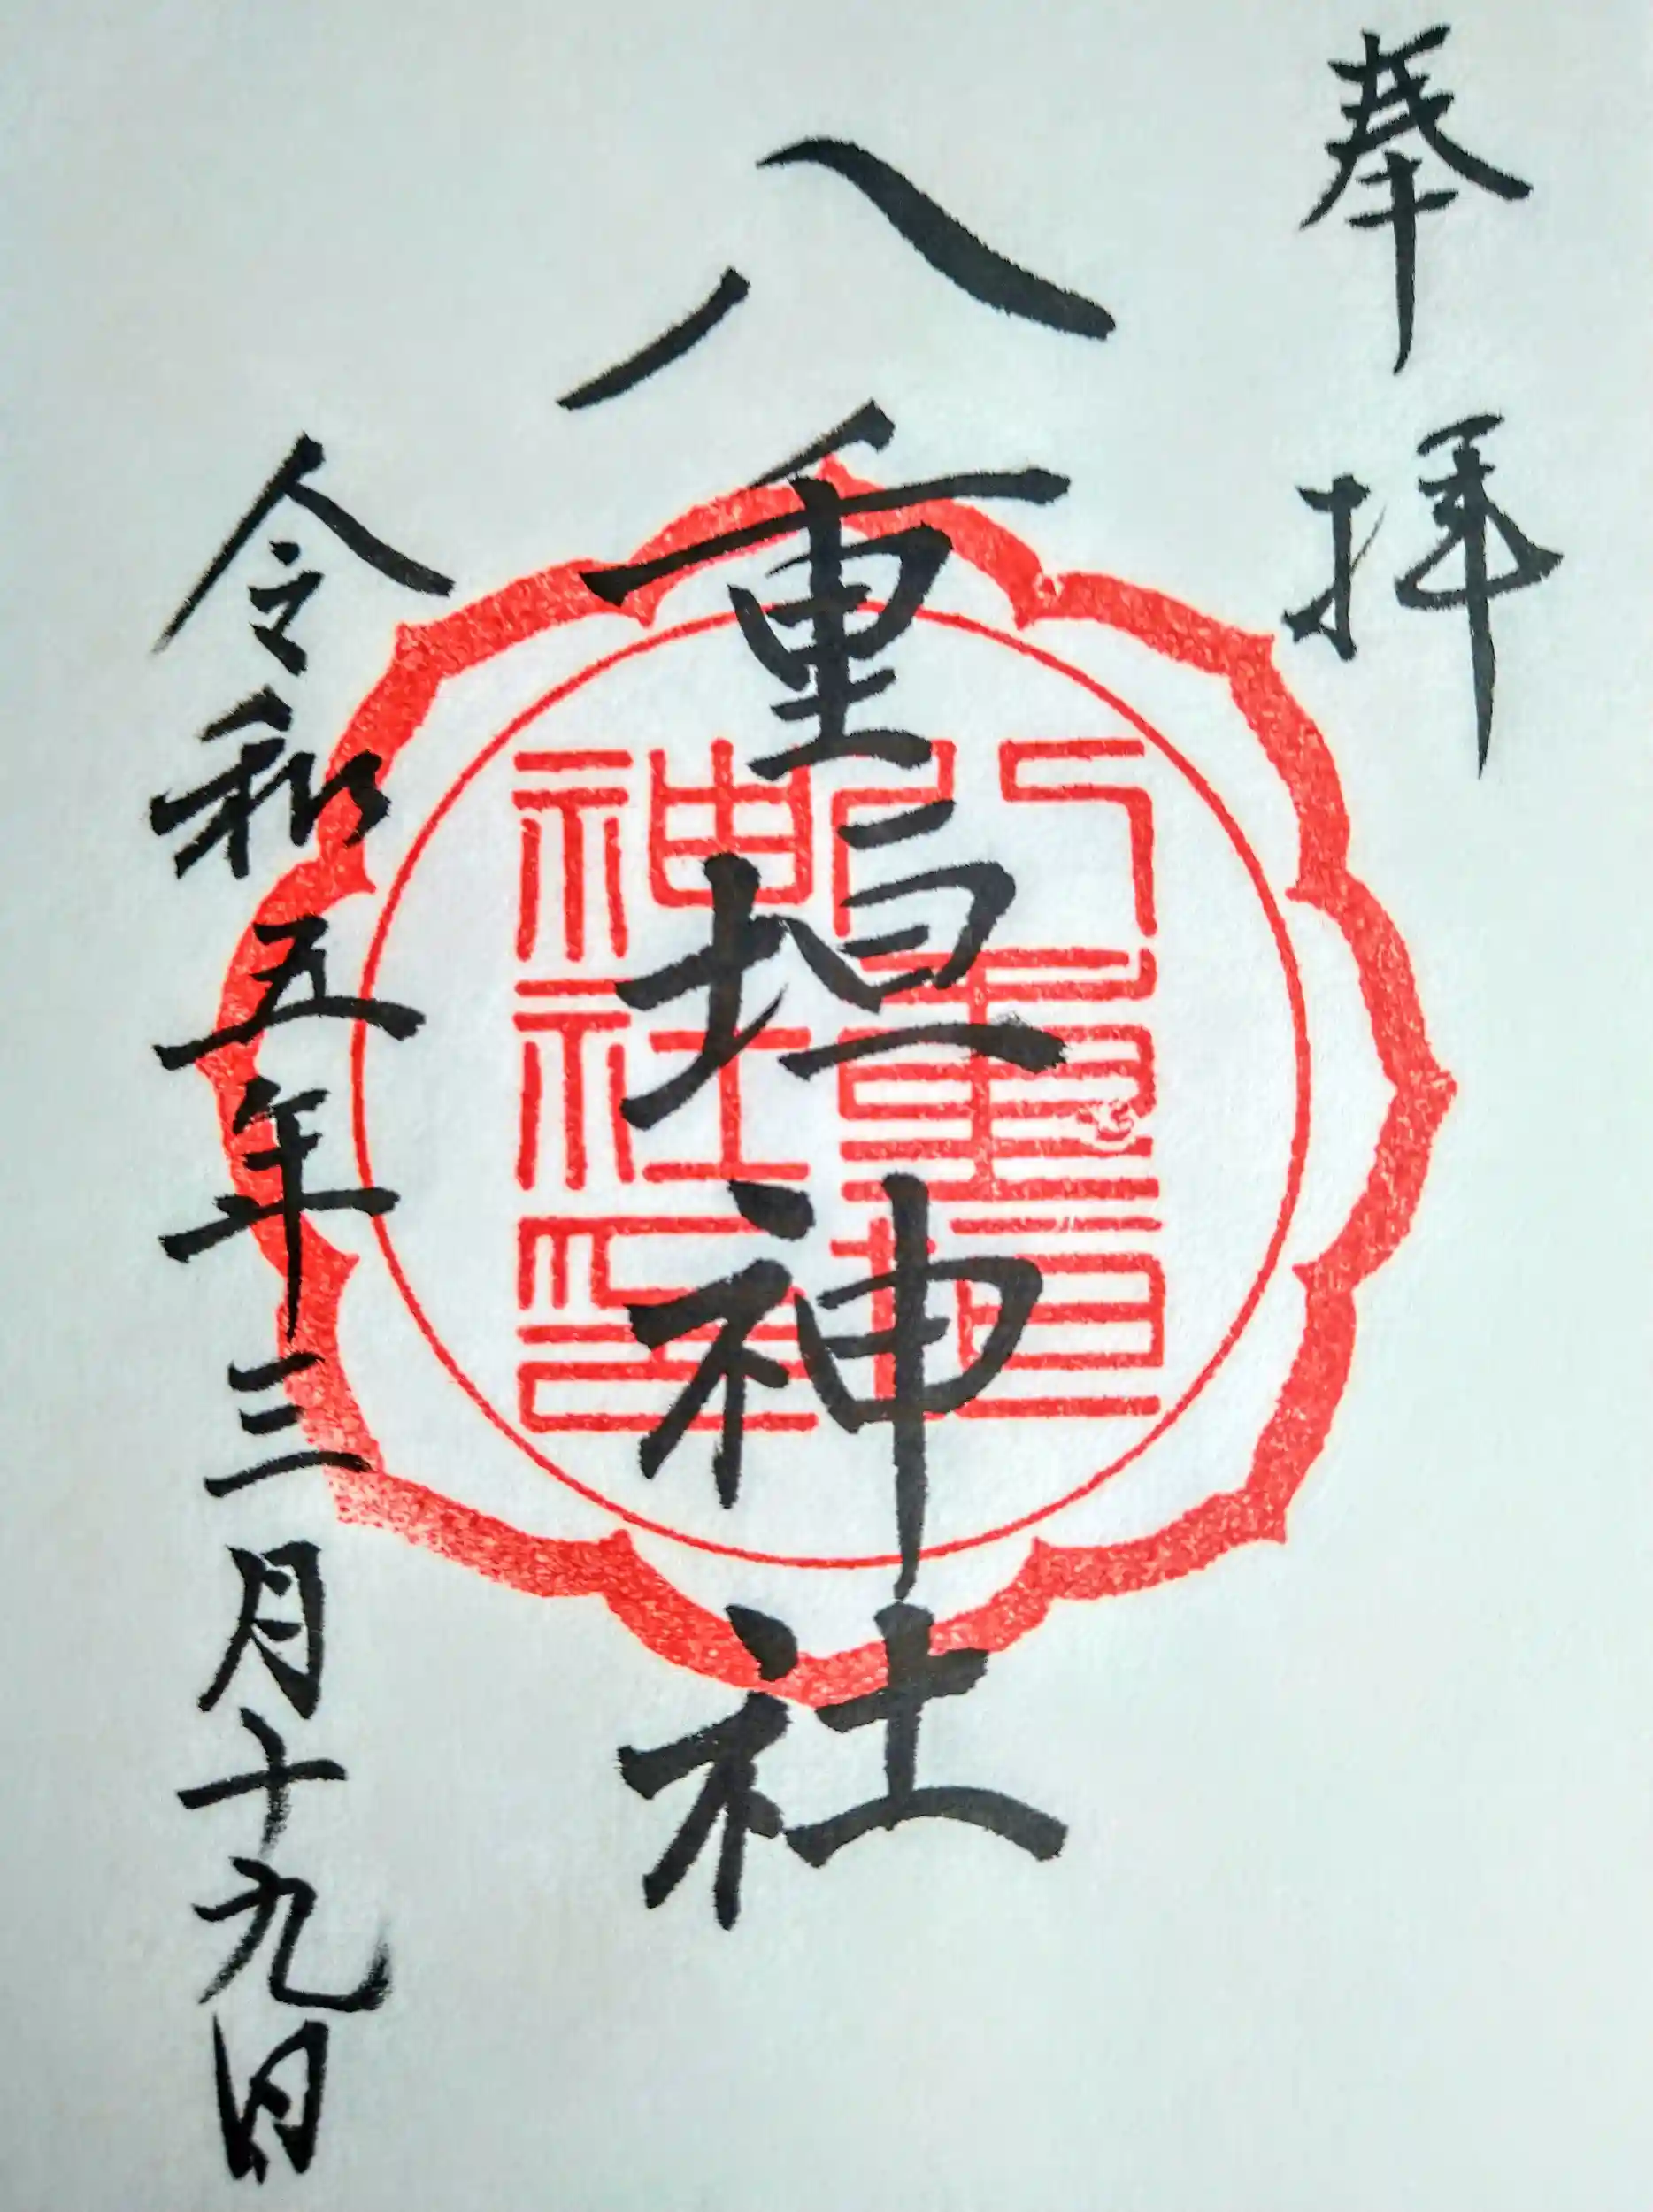 奉拝
八重垣神社
八重垣
神社印
令和五年三月十九日